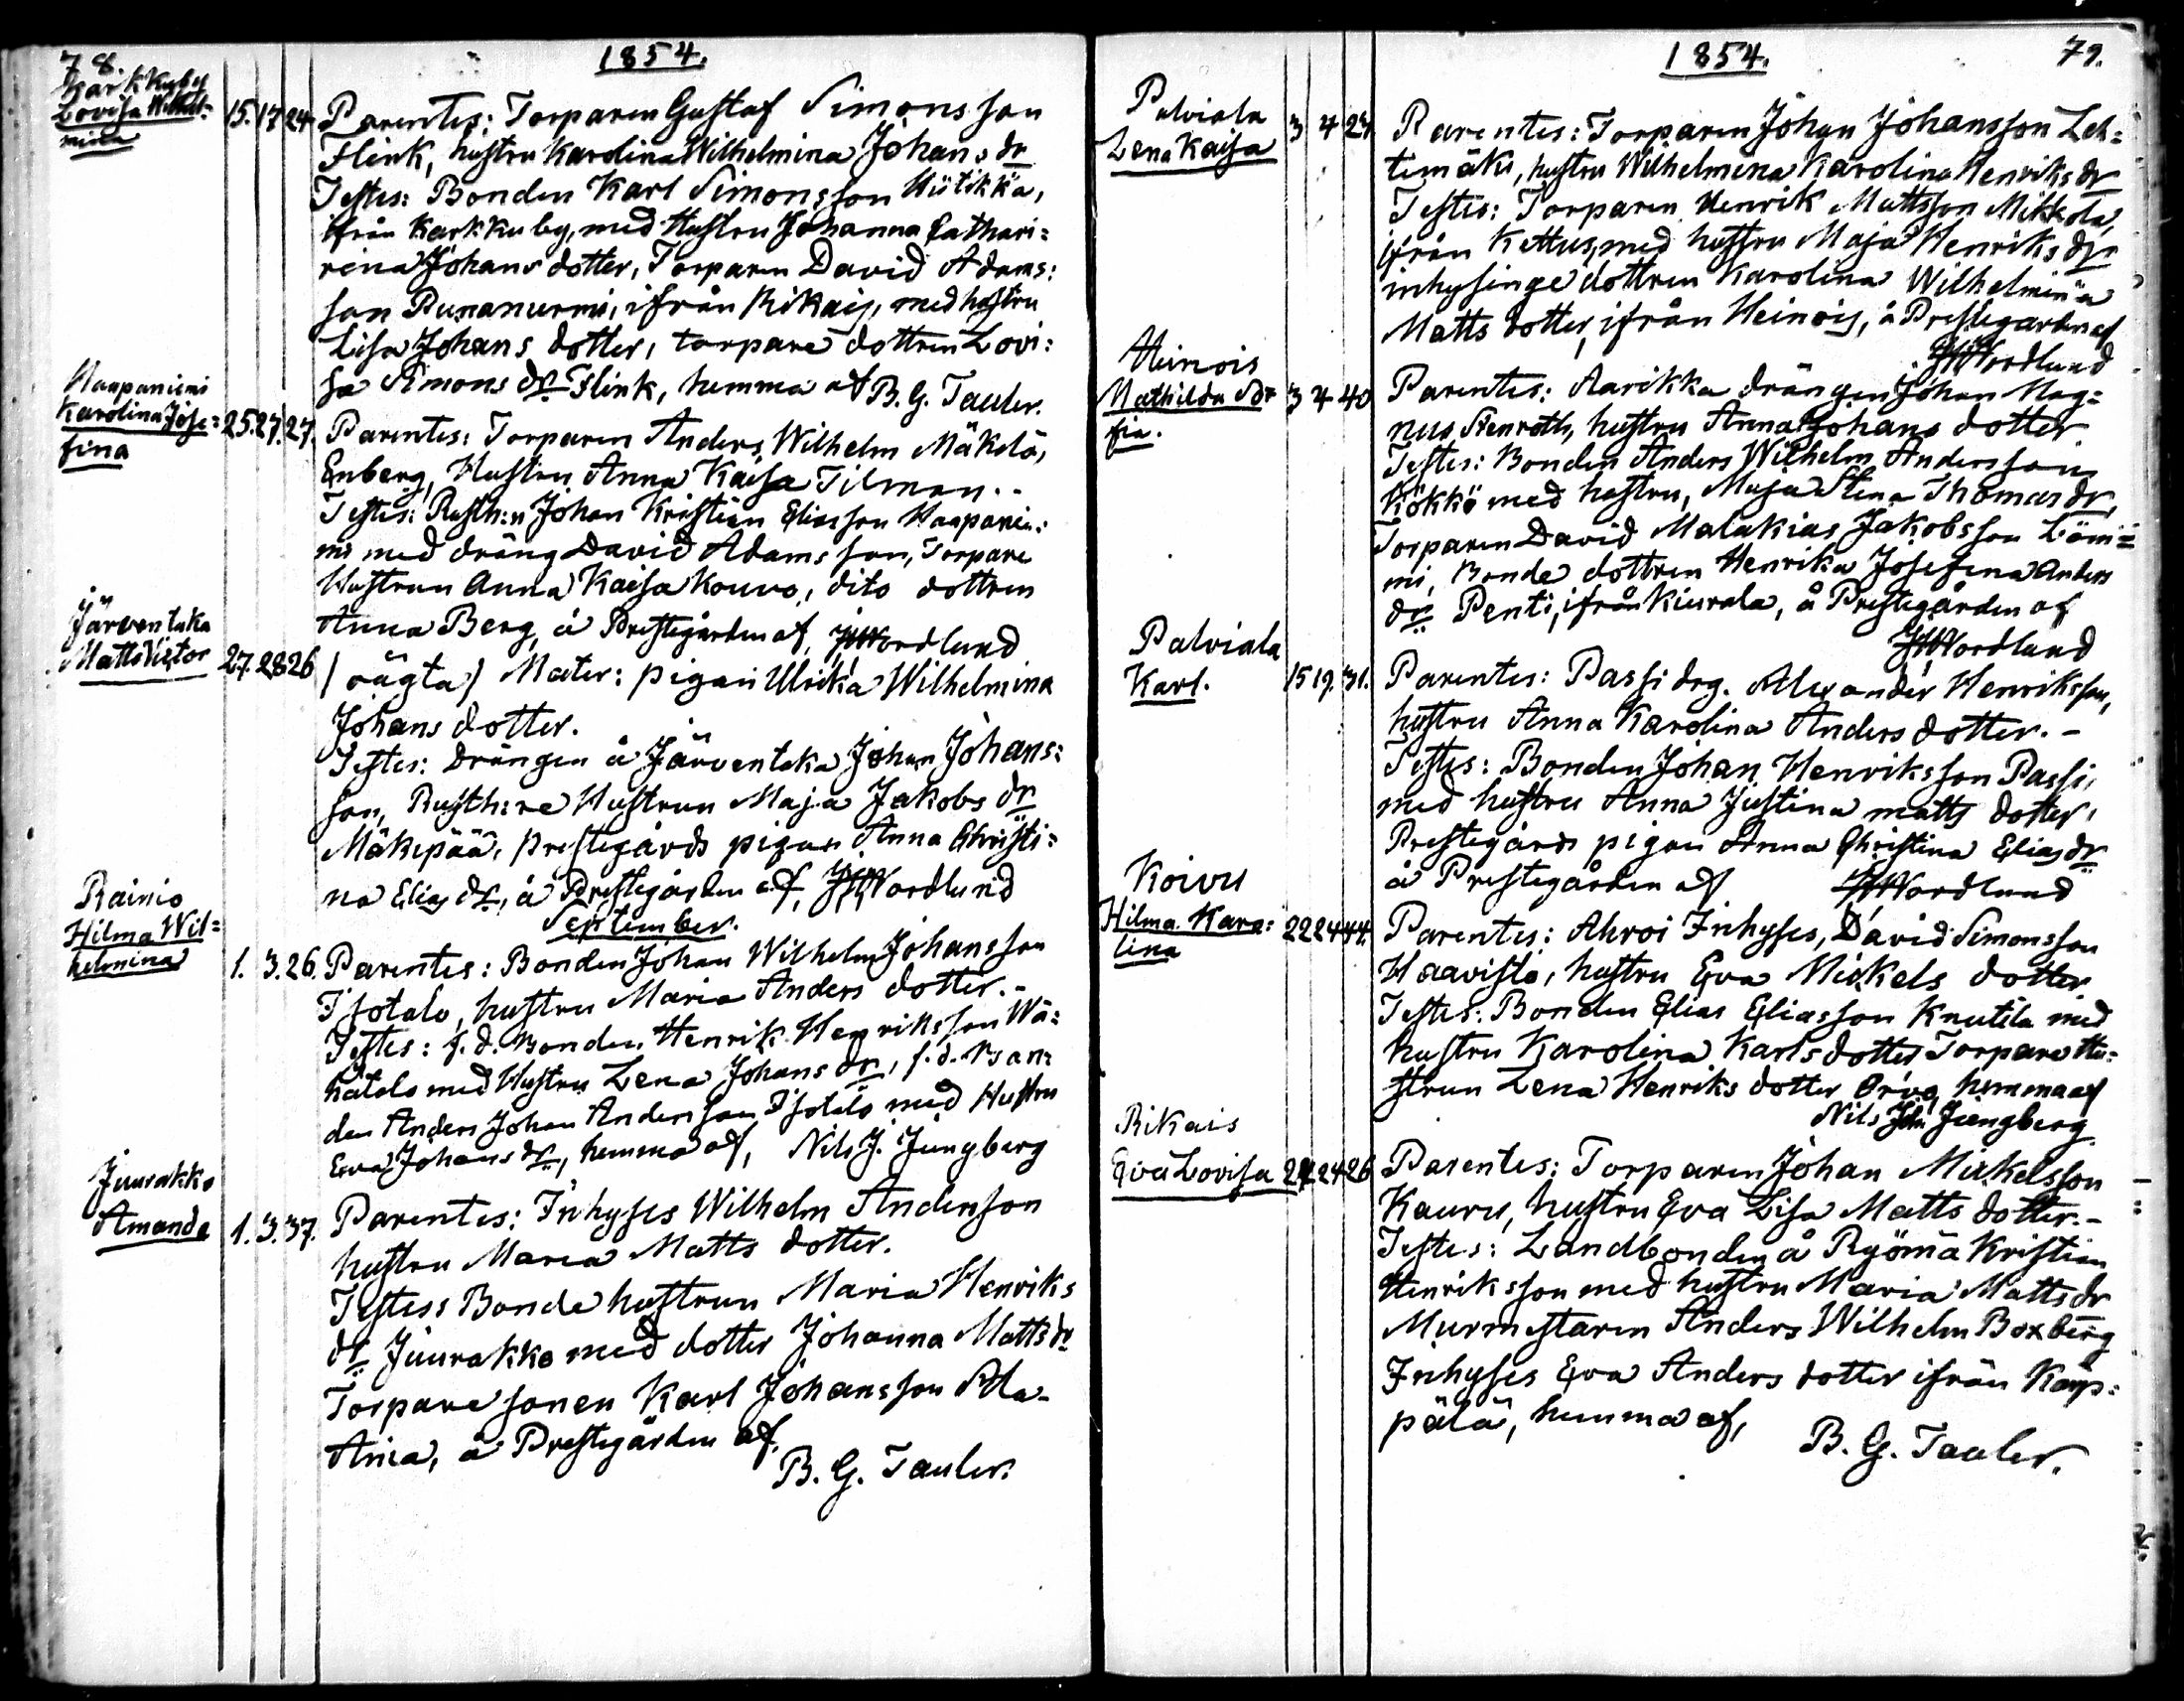 78.
1854.
Karkkuby
Lovisa Wilhel=
mina
15. 17 24.
Parentes: Torparen Gustaf Simonsson
Flink, hustru Karolina Wilhelmina Johans dr
Testes: Bonden Karl Simonsson Hütikkä,
ifrån Karkkuby, med Hustru Johanna Cathari=
rina Johans dotter, Torparen David Adams=
son Punanurmi, ifrån Rikais, med hustru
Lisa Johans dotter, torpare dottren Lovi=
sa Simons dr Flink, hemma af B. G. Tauler.
Haapaniemi
Karolina Jose=
fina
25. 27. 27.
Parentes: Torparen Anders Wilhelm Mäkelä,
Enberg, Hustru Anna Kaisa Tilman.
Testes: Rusth:n Johan Kristian Eliasson Haapanie=
mi med dräng David Adamsson, Torpare
Hustrun Anna Kaisa Kouvo, dito dottren
Anna Berg, å Prestegården af, Nordlund
Järventaka
Matts Victor
27. 28 26
(oägta) Mater: pigan Ulrika Wilhelmina
Johans dotter.
Testes: Drängen å Järventaka Johan Johans=
son, Rusth:re Hustrun Maja Jakobs dr
Mäkipää, prestegårds pigan Anna Christi=
na Elias dr, å Prestegården af, Nordlund
September.
Rainio
Hilma Wil=
helmina
1. 3. 26.
Parentes: Bonden Johan Wilhelm Johansson
Isotalo, hustru Maria Anders dotter.-
Testes: f. d. Bonden Henrik Henriksson Wä=
hätalo med Hustru Lena Johans dr, f. d. Bon=
den Anders Johan Andersson Isotalo med Hustru
Eva Johans dr, hemma af, Nils J. Jungberg
Juurakko
Amanda
1. 3. 37.
Parentes: Inhyses Wilhelm Andersson
hustru Maria Matts dotter.
Testes: Bonde hustrun Maria Henriks
dr Juurakko med dotter Johanna Matts dr
Torpare sonen Karl Johansson Ala-
Ania, å Prestegården af,
B. G. Tauler.
1854.
79.
Palviala
Lena Kaisa
3 4 24.
Parentes: Torparen Johan Johansson Leh=
timäki, hustru Wilhelmina Karolina Henriks dr
Testes: Torparen Henrik Mattsson Mikkola,
ifrån Kettus, med hustru Maja Henriks dr
inhysinge dottren Karolina Wilhelmina
Matts dotter, ifrån Heinois, å Prestegården af
Nordlund
Heinois
Mathilda So=
fia.
3 4 40
Parentes: Aarikka drängen Johan Mag=
nus Stenroth, hustru Anna Johans dotter.
Testes: Bonden Anders Wilhelm Andersson
Kökkö med hustru, Maja Stina Thomas dr,
Torparen David Malakias Jakobsson Löni=
mi, Bonde dottren Henrika Josefina Anders
dr Penti, ifrån Kiurala, å Prestegården af
Nordlund
Palviala
Karl.
15 19. 31.
Parentes: Passi drg. Alexander Henriksson,
hustru Anna Karolina Anders dotter.-
Testes: Bonden Johan Henriksson Passi,
med hustru Anna Justina Matts dotter,
Prestegårds pigan Anna Christina Elias dr
å Prestegården af Nordlund
Koivu
Hilma Karo=
lina
22 24 44.
Parentes: Ahroi Inhyses, David Simonsson
Haavisto, hustru Eva Mickels dotter
Testes: Bonden Elias Eliasson Knutila med
hustru Karolina Karls dotter Torpare Hu=
strun Lena Henriks dotter hemma af
Nils Joh: Jungberg.
Rikais
Eva Lovisa
24 24 26
Parentes: Torparen Johan Mickelsson
Kauru, hustru Eva Lisa Matts dotter.-
Testes: Landbonden å Ryömä Kristian
Henriksson med hustru Maria Matts dr
Murmestaren Anders Wilhelm Boxberg
Inhyses Eva Anders dotter ifrån Karp=
pälä, hemma af,
B. G. Tauler.